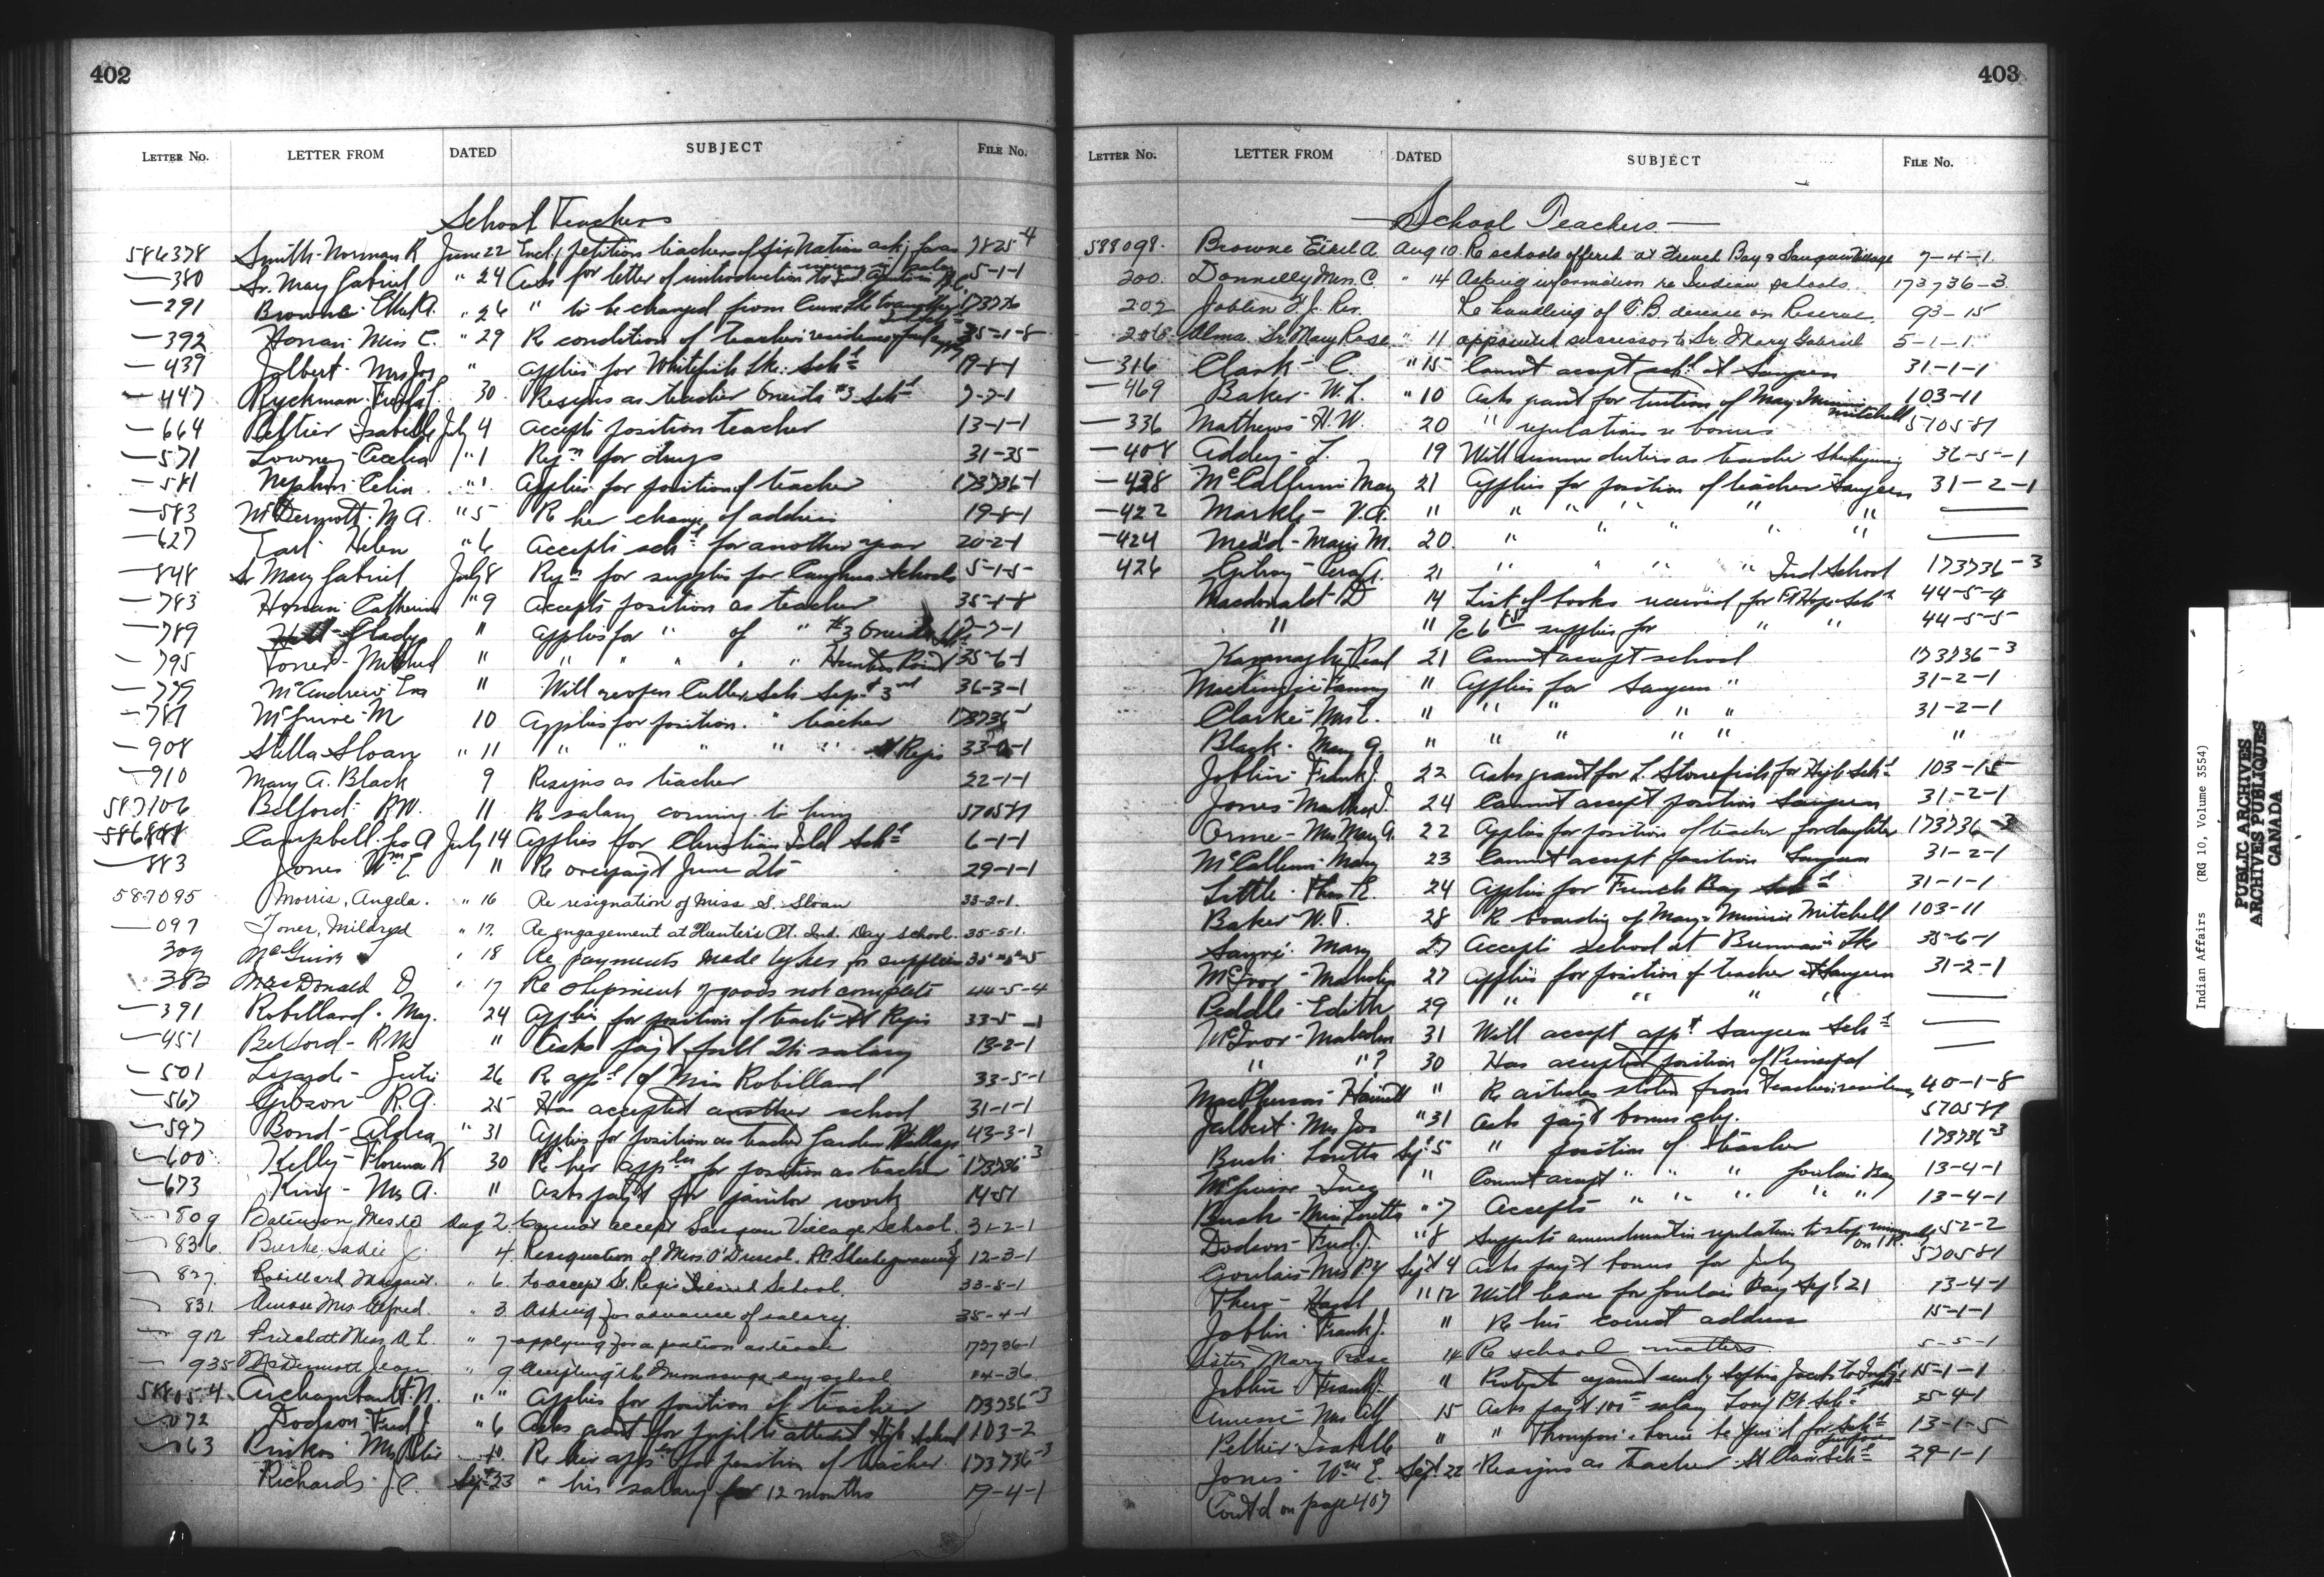 402
LETTER No. LETTER FROM DATED SUBJECT FILE No.
School Teachers
586378 Smith-Norman R June 22 Encl. petition teachers of Six Nation ask, for an 7825-4
—380 Sr. Mary Gabriel " 24 Asks for letter of introduction to 5-1-1
—291 Browne Ethel A. " 26 " to be changed from 173736
—392 Honan Miss C. " 29 Re condition of teachers residence 35-1-8
—439 Jalbert Mrs Jos " applies for Whitefish Lke. Schl 19-1-1
—447 Ryckman 30 Resigns as teacher Oneida #3 Schl 7-7-1
—664 Peltier Isabelle July 4 accepts position teacher 13-1-1
—571 Lowney Cecelia " 1 Reqn for drugs 31-35
—581 Nephin Celia " 1 Applies for position of teacher 173736-1
—583 McDermott M A. " 5 Re her change of address 19-8-1
—627 Earl Helen " 6 Accepts schl for another year 20-2-1
—848 Sr Mary Gabriel July 8 Reqn for supplies for Caughna. schools 5-1-5
—783 Honan Catherine " 9 Accepts position as teacher 35-1-8
—789 Glady " applies for " of " #3 Oneida 7-7-1
—795 Toner-Mildred " " " " " " Hunters Point 35-6-1
—779 McAndrew Eva " Will reopen Cutler Sch Sept 3rd 36-3-1
—781 McGuire-M 10 Applies for position " teacher 173736-1
—908 Stella Sloan " 11 " " " " " St Regis 33-2-1
—910 Mary A. Black 9 Resigns as teacher 22-1-1
587106 Belford RW. 11 Re salary coming to him 570581
586888 Campbell Geo A July 14 Applies for Christian Isld Schl 6-1-1
—883 Jones Wm E " Re overpayt June 2tr 29-1-1
587095 Morris, Angela. " 16 Re resignation of Miss S. Sloan 33-2-1.
—097 Toner, Mildred " 17. Re engagement at Hunter's Pt. Ind. Day School. 35-5-1.
309 McGuire " 18 Re payments made by her for supplies
—383 MacDonald D. " 17 Re shipment of goods not complete 44-5-4
—391 Robillard. Mag. " 24 Applies for position of teach. St Regis 33-5-1
—451 Belford- RW " Asks payt full 2tr salary 13-2-1
—501 26 Re appt of Miss Robillard 33-5-1
—567 Gibson R.A. 25 Has accepted another school 31-1-1
—597 Bond-Aldea " 31 Applies for position as teacher Garden Village 43-3-1
—600 Kelly-Florence K 30 Re her appln for position as teacher 173736-3
—673 King-Mrs A. " Asks payt for janitor work 14-51
—809 Aug 2. Cannot accept Saugeen Village School. 31-2-1
—836 Burke, Sadie J. 4. Resignation of Miss O'Driscol. RC. Sheshegwaning 12-3-1
—827. Robillard, Margaret. " 6. to accept St. Regis Island School. 33-8-1
—831. Amose Mrs. Alfred. " 3. Asking for advance of salary. 35-4-1
—912 Miss. A. L. " 7 applying for a position as teacher 173736-1
—935 McDermott Jean " 9. Accepting the Mississauga day school 14-36
588054. Archambault. N. " " Applies for position of teacher 173736-3
—072 Dodson Fred J. " 6 Asks grant for pupil to attend High School 103-2
—063 10. Re her appln for position of teacher 173736-3
Richards J.C. Sept 23 " his salary for 12 months 19-4-1
403
LETTER No. LETTER FROM DATED SUBJECT FILE No.
—School Teachers—
588098. Browne Ethel A. Aug 10. Re schools offered at French Bay & Saugeen Village 7-4-1.
200. Donnelly Mrs. C. " 14 Asking information re Indian schools. 173736-3.
202 Joblin F. J. Rev. Re handling of T.B. disease on Reserve. 93-15
206 Alma Sr. Mary Rose " 11 appointed successor to Sr. Mary Gabriel 5-1-1.
—316 Clark- C. " 15 Cannot accept schl at Saugeen 31-1-1
—469 Baker- W. L. " 10 Asks grant for tuition of May Minnie Mitchell 103-11
—336 Mathews-H.W. 20 " regulations re bonus 570581
—408 Addey- L. 19 Will resume duties as teacher 36-5-1
—438 McCallum May 21 Applies for position of teacher Saugeen 31-2-1
—422 Markle- V.A. " " " " " " " —
—424 Mead-Marjs M. 20. " " " " " —
426 Gilroy 21 " " " " Ind School 173736-3
Macdonald-D 14 List of books received for Ft Hope Schl 44-5-4
" " supplies for " " 44-5-5
Kavanagh-Pearl 21 Cannot accept school 173736-3
Fanny " Applies for Saugeen " 31-2-1
Clarke-Mrs E. " " " " " 31-2-1
Black. Mary A. " " " " " "
Joblin-Frank J. 22 Asks grant for L. Stonefish for High Schl 103-15
Jones-Martha J. 24 Cannot accept position Saugeen 31-2-1
Orme-Mrs May A. 22 Applies for position of teacher for daughter 173736-3
McCallum-Mary 23 Cannot accept position Saugeen 31-2-1
Little. Thos E. 24 Applies for French Bay Schl 31-1-1
Baker W.T. 28 Re boarding of Mary & Minnie Mitchell 103-11
Mary 27 Accepts school at 35-6-1
McIvor-Malcolm 27 Applies for position of teacher at Saugeen 31-2-1
Peddle-Edith 29 " " " " —
McIvor-Malcolm 31 Will accept appt Saugeen Schl —
" "? 30 Has accepted position of Principal —
MacPherson-Harriett " Re articles stolen from teachers residence 40-1-8
Jalbert-Mrs Jos " 31 asks payt bonus chq. 570581
Bush Loretta Sept. 5 " position of teacher 173736-3
McGuire-Inez " Cannot accept " " " Goulais Bay 13-4-1
Bush-Miss Loretta " 7 Accepts " " " " " 13-4-1
Dodson-Fred. J. " 8 Suggests amendment in regulation to stop on I.R. 52-2
Goulais-Mrs P.Y Sept 4 Asks payt bonus for July 570581
Hazel " 12 Will leave for Goulais Bay Sept. 21 13-4-1
Joblin Frank J. " Re his correct address 15-1-1
Sister Mary Rose 14 Re school matters 5-5-1
Joblin Frank J. " Protests against 15-1-1
Amose- Mrs Alf 15 Asks payt 100 salary Long Pt. Schl 35-4-1
Peltier Isabelle " " Thompson's house be for Schl purposes 13-1-5
Jones- Wm E. Sept 22 Resigns as teacher St Clair Schl 29-1-1
Cont'd on page 407
Indian Affairs (RG 10, Volume 3554)
PUBLIC ARCHIVES
ARCHIVES PUBLIQUES
CANADA